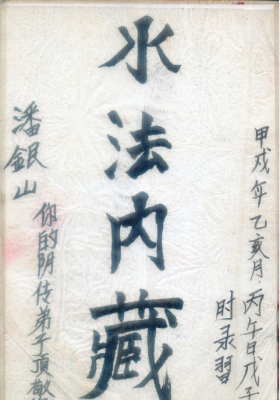 甲戌年乙亥月丙午日戊子
时录習
水法内藏
潘銀山
你的阴传弟子頂敬